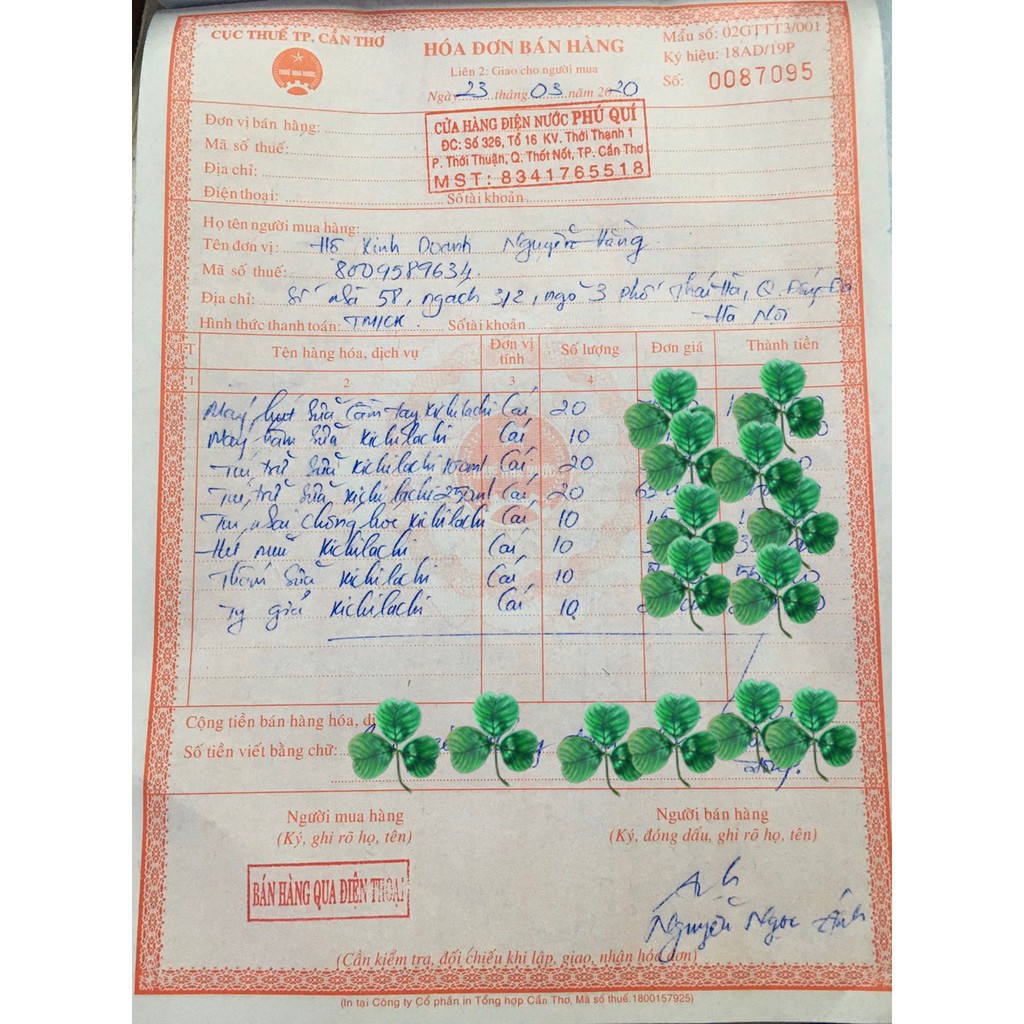 CỤC THUẾ TP. CẦN THƠ
THUẾ NHÀ NƯỚC
HÓA ĐƠN BÁN HÀNG
Liên 2: Giao cho người mua
Ngày 23 tháng 03 năm 2020
Mẫu số: 02GTTT3/001
Ký hiệu: 18AD/19P
Số: 0087095
Đơn vị bán hàng:
Mã số thuế:
Địa chỉ:
Điện thoại: Số tài khoản
CỬA HÀNG ĐIỆN NƯỚC PHÚ QUÍ
ĐC: Số 326, Tổ 16 KV. Thới Thạnh 1
P. Thới Thuận, Q. Thốt Nốt, TP. Cần Thơ
MST: 8341765518
Họ tên người mua hàng:
Tên đơn vị: Hộ Kinh Doanh Nguyễn Hằng
Mã số thuế: 8009589634.
Địa chỉ: Số nhà 58, ngách 3/2, ngõ 3 phố Thái Hà, Q. Đống Đa
Hà Nội
Hình thức thanh toán: TM/CK. Số tài khoản
TT Tên hàng hóa, dịch vụ Đơn vị tính Số lượng Đơn giá Thành tiền
1 2 3 4
Máy hút sữa cầm tay Kichilachi Cái 20
Máy hâm sữa Kichilachi Cái 10
Túi trữ sữa Kichilachi 100ml Cái 20
Túi trữ sữa Kichilachi 250ml Cái 20
Kichilachi Cái 10
Hút mũi Kichilachi Cái 10
Thấm sữa Kichilachi Cái 10
Ty giả Kichilachi Cái 10
Cộng tiền bán hàng hóa, dị
Số tiền viết bằng chữ:
đồng.
Người mua hàng
(Ký, ghi rõ họ, tên)
Người bán hàng
(Ký, đóng dấu, ghi rõ họ, tên)
BÁN HÀNG QUA ĐIỆN THOẠI
Anh
Nguyễn Ngọc Ánh
(Cần kiểm tra, đối chiếu khi lập, giao, nhận hóa đơn)
(In tại Công ty Cổ phần in Tổng hợp Cần Thơ, Mã số thuế: 1800157925)